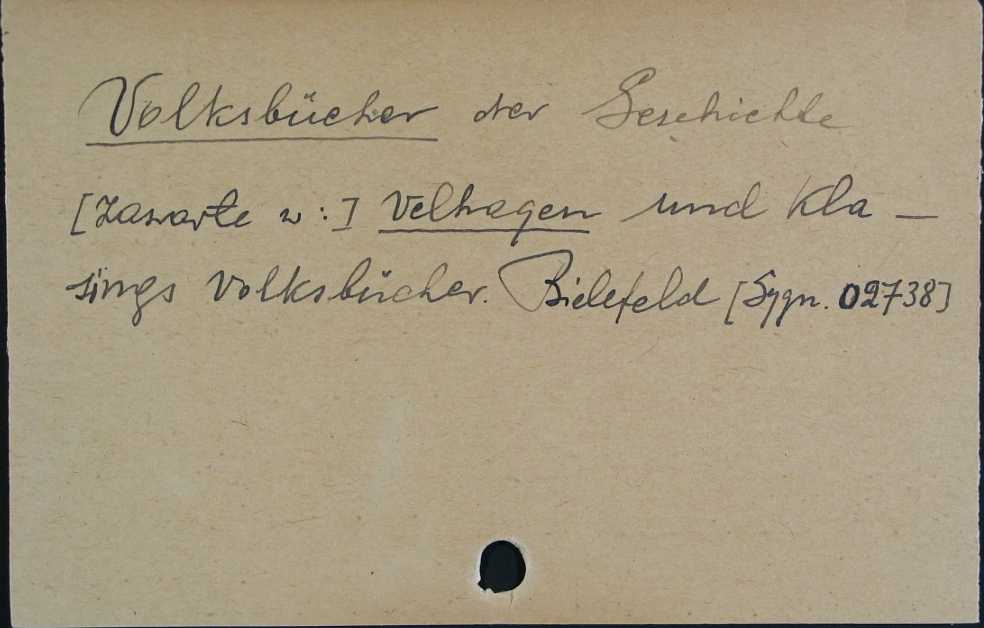 Volksbücher der Geschichte
[Zawarte w:] Velhagen und Kla -
sings Volksbücher. Bielefeld [Sygn. 02738]